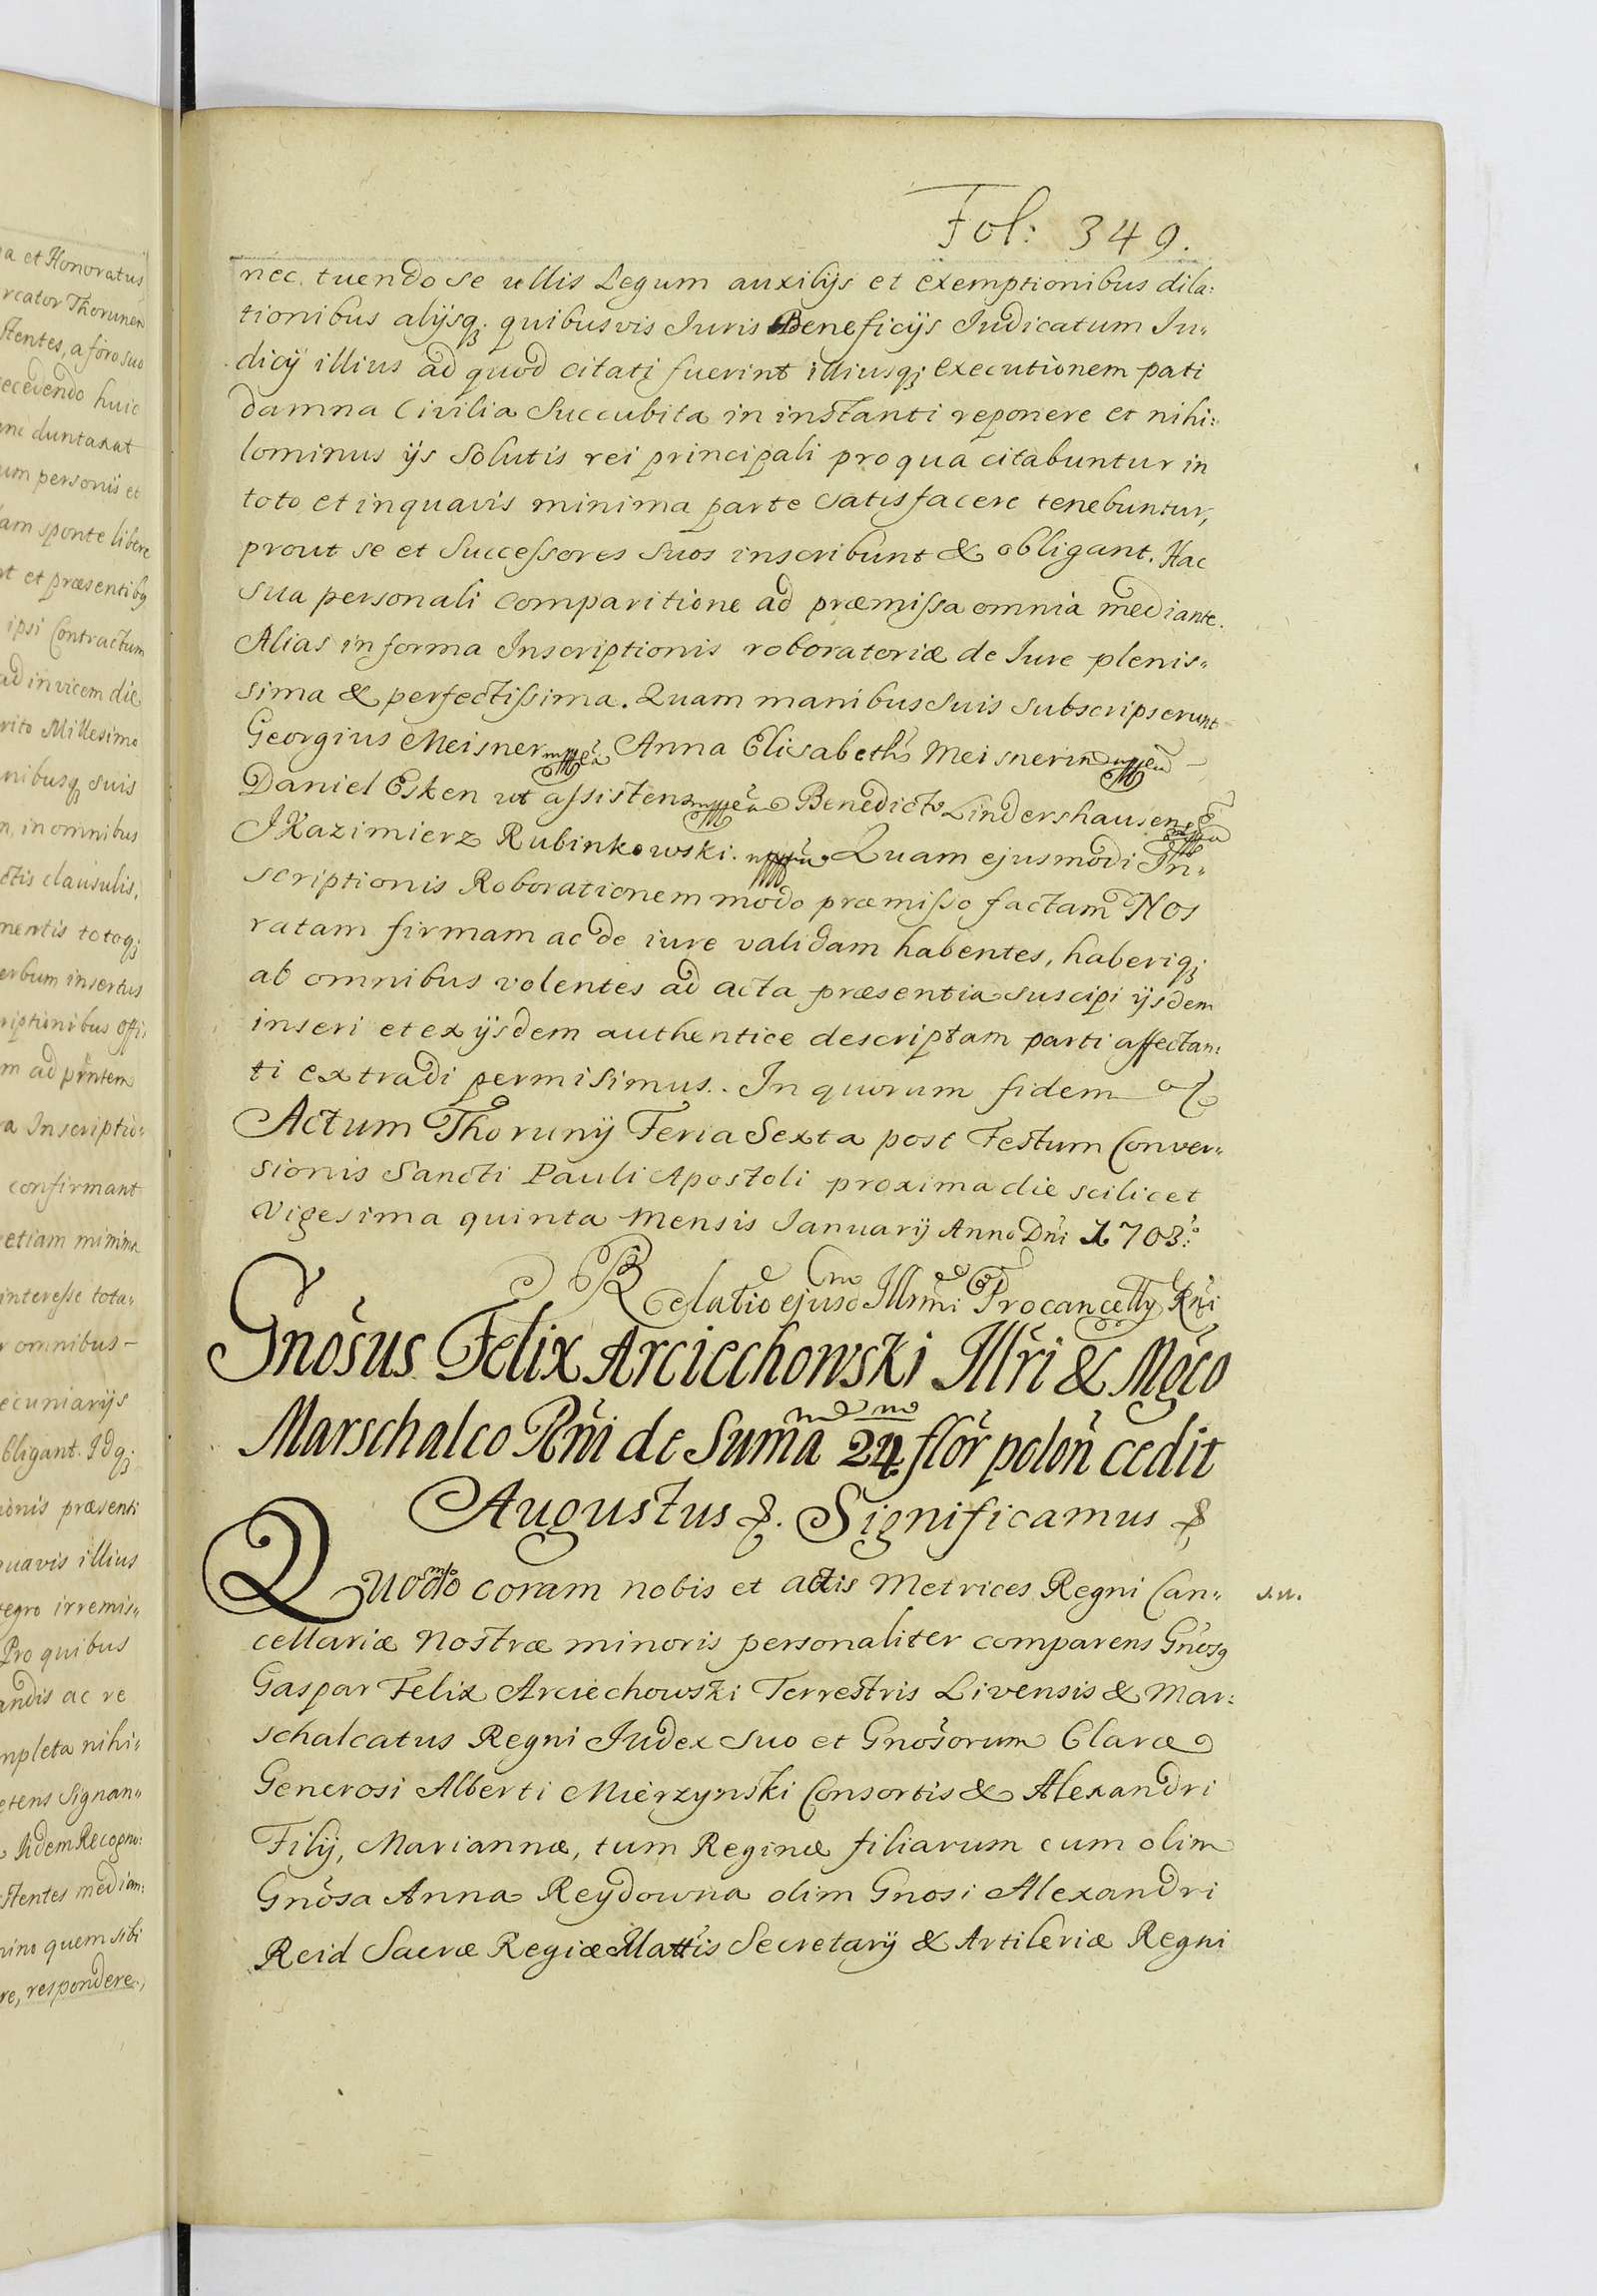 Fol: 349.
nec tuendo se ullis Legum auxilijs et exemptionibus dila:
tionibus alijsq; quibusvis Iuris Beneficijs Iudicatum Iu„
dicij illius ad quod citati fuerint illiusq; executionem pati
damna Civilia Succubita in instanti reponere et nihi:
lominus ijs Solutis rei principali pro qua citabuntur in
toto et in quavis minima parte satisfacere tenebuntur,
prout se et Successores Suos inscribunt & obligant. Hac
sua personali comparitione ad præmissa omnia mediante.
Alias in forma Inscriptionis roboratoriæ de Iure plenis„
sima & perfectissima. Quam manibus Suis subscripserunt
Georgius Meisner mppa Anna Elisabeth Meisnerin mppa
Daniel Esken ut assistens mppa Benedict Lindershausen
J Kazimierz Rubinkowski. mppa Quam ejusmodi In„
scriptionis Roborationem modo præmisso factam Nos
ratam firmam ac de iure validam habentes, haberiq;
ab omnibus volentes ad acta præsentia suscipi ijsdem
inseri et ex ijsdem authentice descriptam parti affectan:
ti extradi permisimus. In quorum fidem
Actum Thorunij Feria Sexta post Festum Conver„
sionis Sancti Pauli Apostoli proxima die scilicet
Vigesima quinta Mensis Ianuarij Anno Dni 1703.
Relatio ejusd Illrmi Procancellrij Rni
Gnosus Felix Arciechowski Illri & Mgco
Marschalco Rni de Suma 24 flor polon cedit
Augustus &. Significamus &
Quomodo coram nobis et actis Metrices Regni Can„
cellariæ Nostræ minoris personaliter comparens Gnosq
Gaspar Felix Arciechowski Terrestris Livensis & Mar:
schalcatus Regni Iudex Suo et Gnosorum Claræ
Generosi Alberti Mierzynski Consortis & Alexandri
Filij, Mariannæ, tum Reginæ filiarum cum olim
Gnosa Anna Reydowna olim Gnosi Alexandri
Reid Sacræ Regiæ Mattis Secretarij & Artileriæ Regni
a et Honoratus
rcator Thorunen
stentes, a foro suo
ecedendo huic
duntaxat
um personis et
am sponte libere
t et præsentibq
ipsi Contractum
ad invicem die
rito Millesimo
nibusq suis
n, in omnibus
ctis clausulis,
mentis totoq;
erbum insertus
riptionibus offi:
m ad prntem
a Inscriptio:
confirmant
etiam minima
interesse tota„
omnibus –
ecuniarijs
bligant. Idq;
ionis præsenti
uavis illius
tegro irremis„
Pro quibus
andis ac re
mpleta nihi„
etens Signan„
Iidem Recogno:
stentes median:
nino quem sibi
re, respondere,